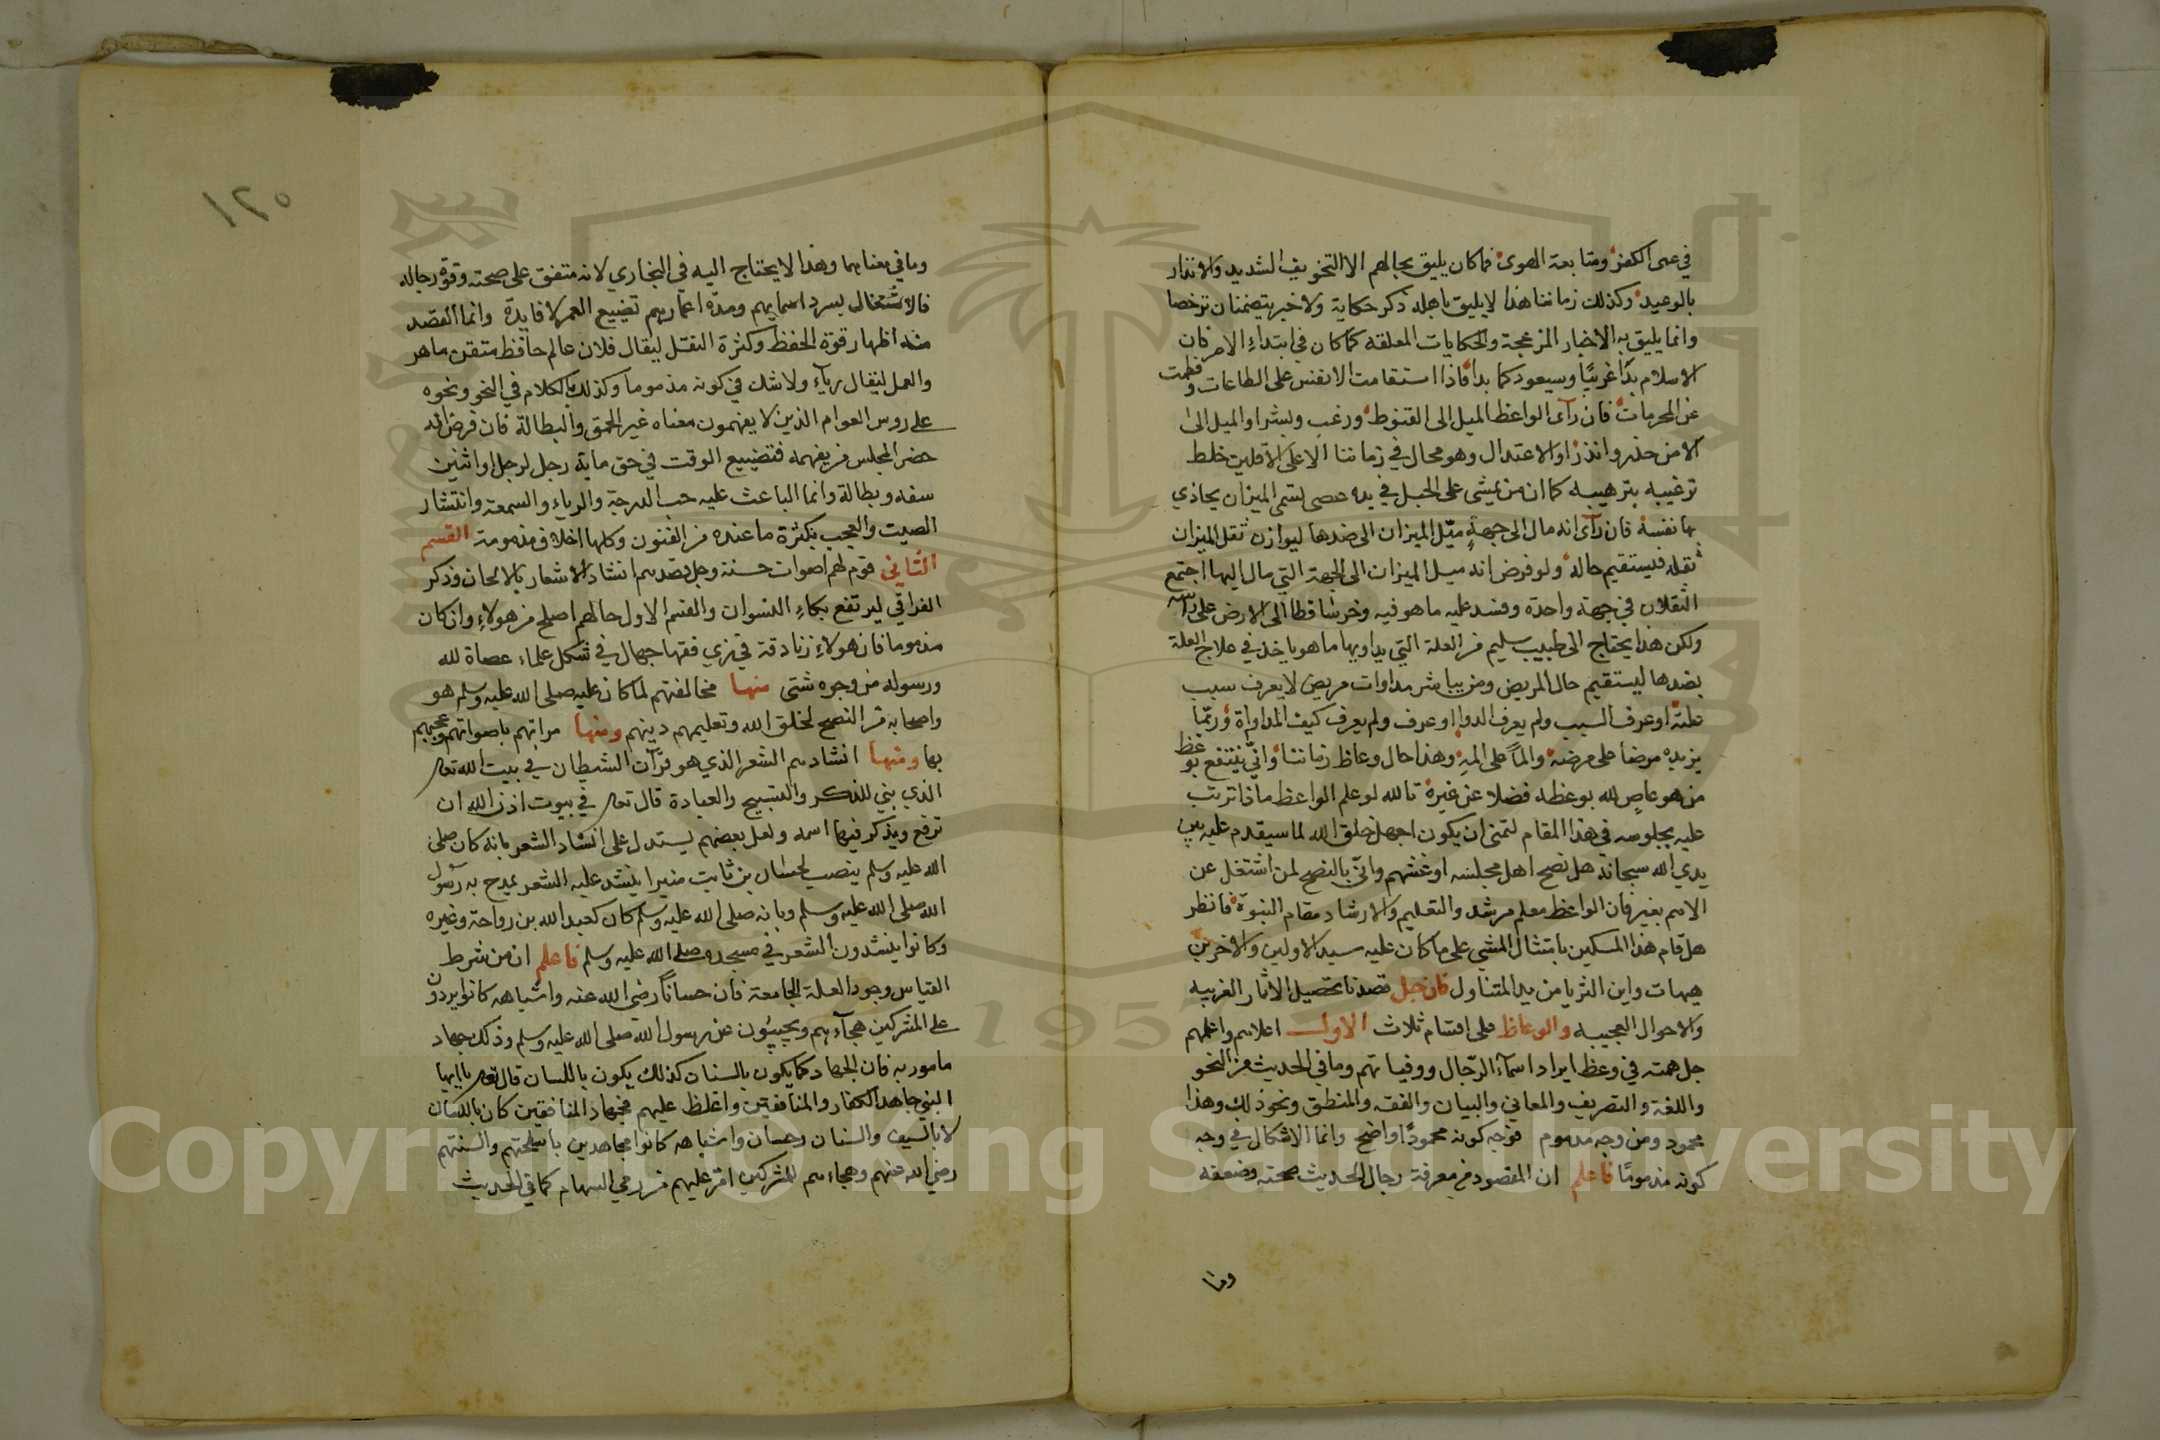 في عمى الكفر ومتابعة الهوى فما كان يليق بحالهم الا التخويف الشديد والانذار
بالوعيد وكذلك زماننا هذا لا يليق باهله ذكر حكاية ولا خبر يتضمنان ترخصا
وانما يليق به الاخبار المزعجة والحكايات المعلقه كما كان في ابتداء الامر فان
الاسلام بدا غريبا وسيعود كما بدا فاذا استقامت الانفس على الطاعات وفطمت
عن المحرمات فان رآى الواعظ الميل الى القنوط ورغب وبشر او الميل الى
الامن حذر وانذر او الاعتدال وهو محال في زماننا الا على الاقلين خلط
ترغيبه بترهيبه كما ان من يمشي على الحبل في يده عصى تسمى الميزان يحاذي
بها نفسه فان رآى انه مال الى جهة ميّل الميزان الى ضدها ليوازن ثقل الميزان
ثقله فيستقيم حاله ولو فرض انه ميل الميزان الى الجهة التي مال اليها اجتمع
الثقلان في جهة واحدة وفسد عليه ما هو فيه وخر ساقطا الى الارض على راسه
ولكن هذا يحتاج الى طبيب سليم من العلة التي يداويها ما هو ياخذ في علاج العلة
بضدها ليستقيم حال المريض ومن يباشر مداوات مريض لا يعرف سبب
علته او عرف السبب ولم يعرف الدوا او عرف ولم يعرف كيف المداواة وربما
يزيده مرضا على مرضه والما على المه وهذا حال وعاظ زماننا وانّى ينتفع بوعظ
من هو عاص لله بوعظه فضلا عن غيره تالله لو علم الواعظ ماذا ترتب
عليه بجلوسه في هذا المقام لتمنى ان يكون اجهل خلق الله لما سيقدم عليه بين
يدي الله سبحانه هل نصح اهل مجلسه او غشهم وانّى بالنصح لمن اشتغل عن
الاسم بغير فان الواعظ معلم مرشد والتعليم والارشاد مقام النبوة فانظر
هل قام هذا المسكين بامتثال المشي على ما كان عليه سيد الاولين والاخرين
هيهات واين الثريا من يد المتناول فان قيل قصدنا تحصيل الاثار الغريبه
والاحوال العجيبه والوعاظ على اقسام ثلاث الاول اعلاهم واعلمهم
جل همته في وعظ ايراد اسماء الرجال ووفياتهم وما في الحديث من النحو
واللغة والتصريف والمعاني والبيان والفقه والمنطق ونحو ذلك وهذا
محمود ومن وجه مذموم فوجه كونه محمودا واضح وانما الاشكال في وجه
كونه مذموما فاعلم ان المقصود من معرفة رجال الحديث صحته وضعفه
وما
١٢٥
وما في معناهما وهذا لا يحتاج اليه في البخاري لانه متفق على صحته وقوة رجاله
فالاشتغال بسرد اسمايهم ومدة اعمارهم تضييع العمر لا فايدة وانما القصد
منه اظهار قوة الحفظ وكثرة النقل ليقال فلان عالم حافظ متقن ماهر
والعمل ليقال رياء ولا شك في كونه مذموما وكذلك الكلام في النحو ونحوه
على روس العوام الذين لا يفهمون معناه غير الحمق والبطالة فان فرض انه
حضر المجلس من يفهمه فتضييع الوقت في حق ماية رجل لرجل او اثنين
سفه وبطالة وانما الباعث عليه حب الدرجة والرياء والسمعة وانتشار
الصيت والعجب بكثرة ما عنده من الفنون وكلها اخلاق مذمومة القسم
الثاني قوم لهم اصوات حسنة وجل قصدهم انشاد الاشعار بالالحان وذكر
الفراقي ليرتفع بكاء النسوان والقسم الاول حالهم اصلح من هولاء وان كان
مذموما فان هولاء زنادقة في زي فقها جهال في شكل علماء عصاة لله
ورسوله من وجوه شتى منها مخالفتهم لما كان عليه صلى الله عليه وسلم هو
واصحابه من النصح لخلق الله وتعليمهم دينهم ومنها مراتهم باصواتهم وعجبهم
بها ومنها انشادهم الشعر الذي هو قرآن الشيطان في بيت الله تعالى
الذي بني للذكر والتسبيح والعبادة قال تعالى في بيوت اذن الله ان
ترفع ويذكر فيها اسمه ولعل بعضهم يستدل على انشاد الشعر بانه كان صلى
الله عليه وسلم ينصب لحسان بن ثابت منبرا ينشد عليه الشعر يمدح به رسول
الله صلى الله عليه وسلم وبانه صلى الله عليه وسلم كان كعبد الله بن رواحة وغيره
وكانوا ينشدون الشعر في مسجده صلى الله عليه وسلم فاعلم ان من شرط
القياس وجود العلة الجامعة فان حسانا رضي الله عنه واشباهه كانوا يردون
على المشركين هجآءهم ويجيبون عن رسول الله صلى الله عليه وسلم وذلك جهاد
مامور به فان الجهاد كما يكون بالسنان كذلك يكون باللسان قال تعالى يا ايها
النبي جاهد الكفار والمنافقين واغلظ عليهم فجهاد المنافقين كان باللسان
لا بالسيف والسنان وحسان واشباهه كانوا مجاهدين باسلحتهم والسنتهم
رضي الله عنهم وهجاءهم للمشركين اقر عليهم من رمي السهام كما في الحديث
1957
Copyright © King Saud University